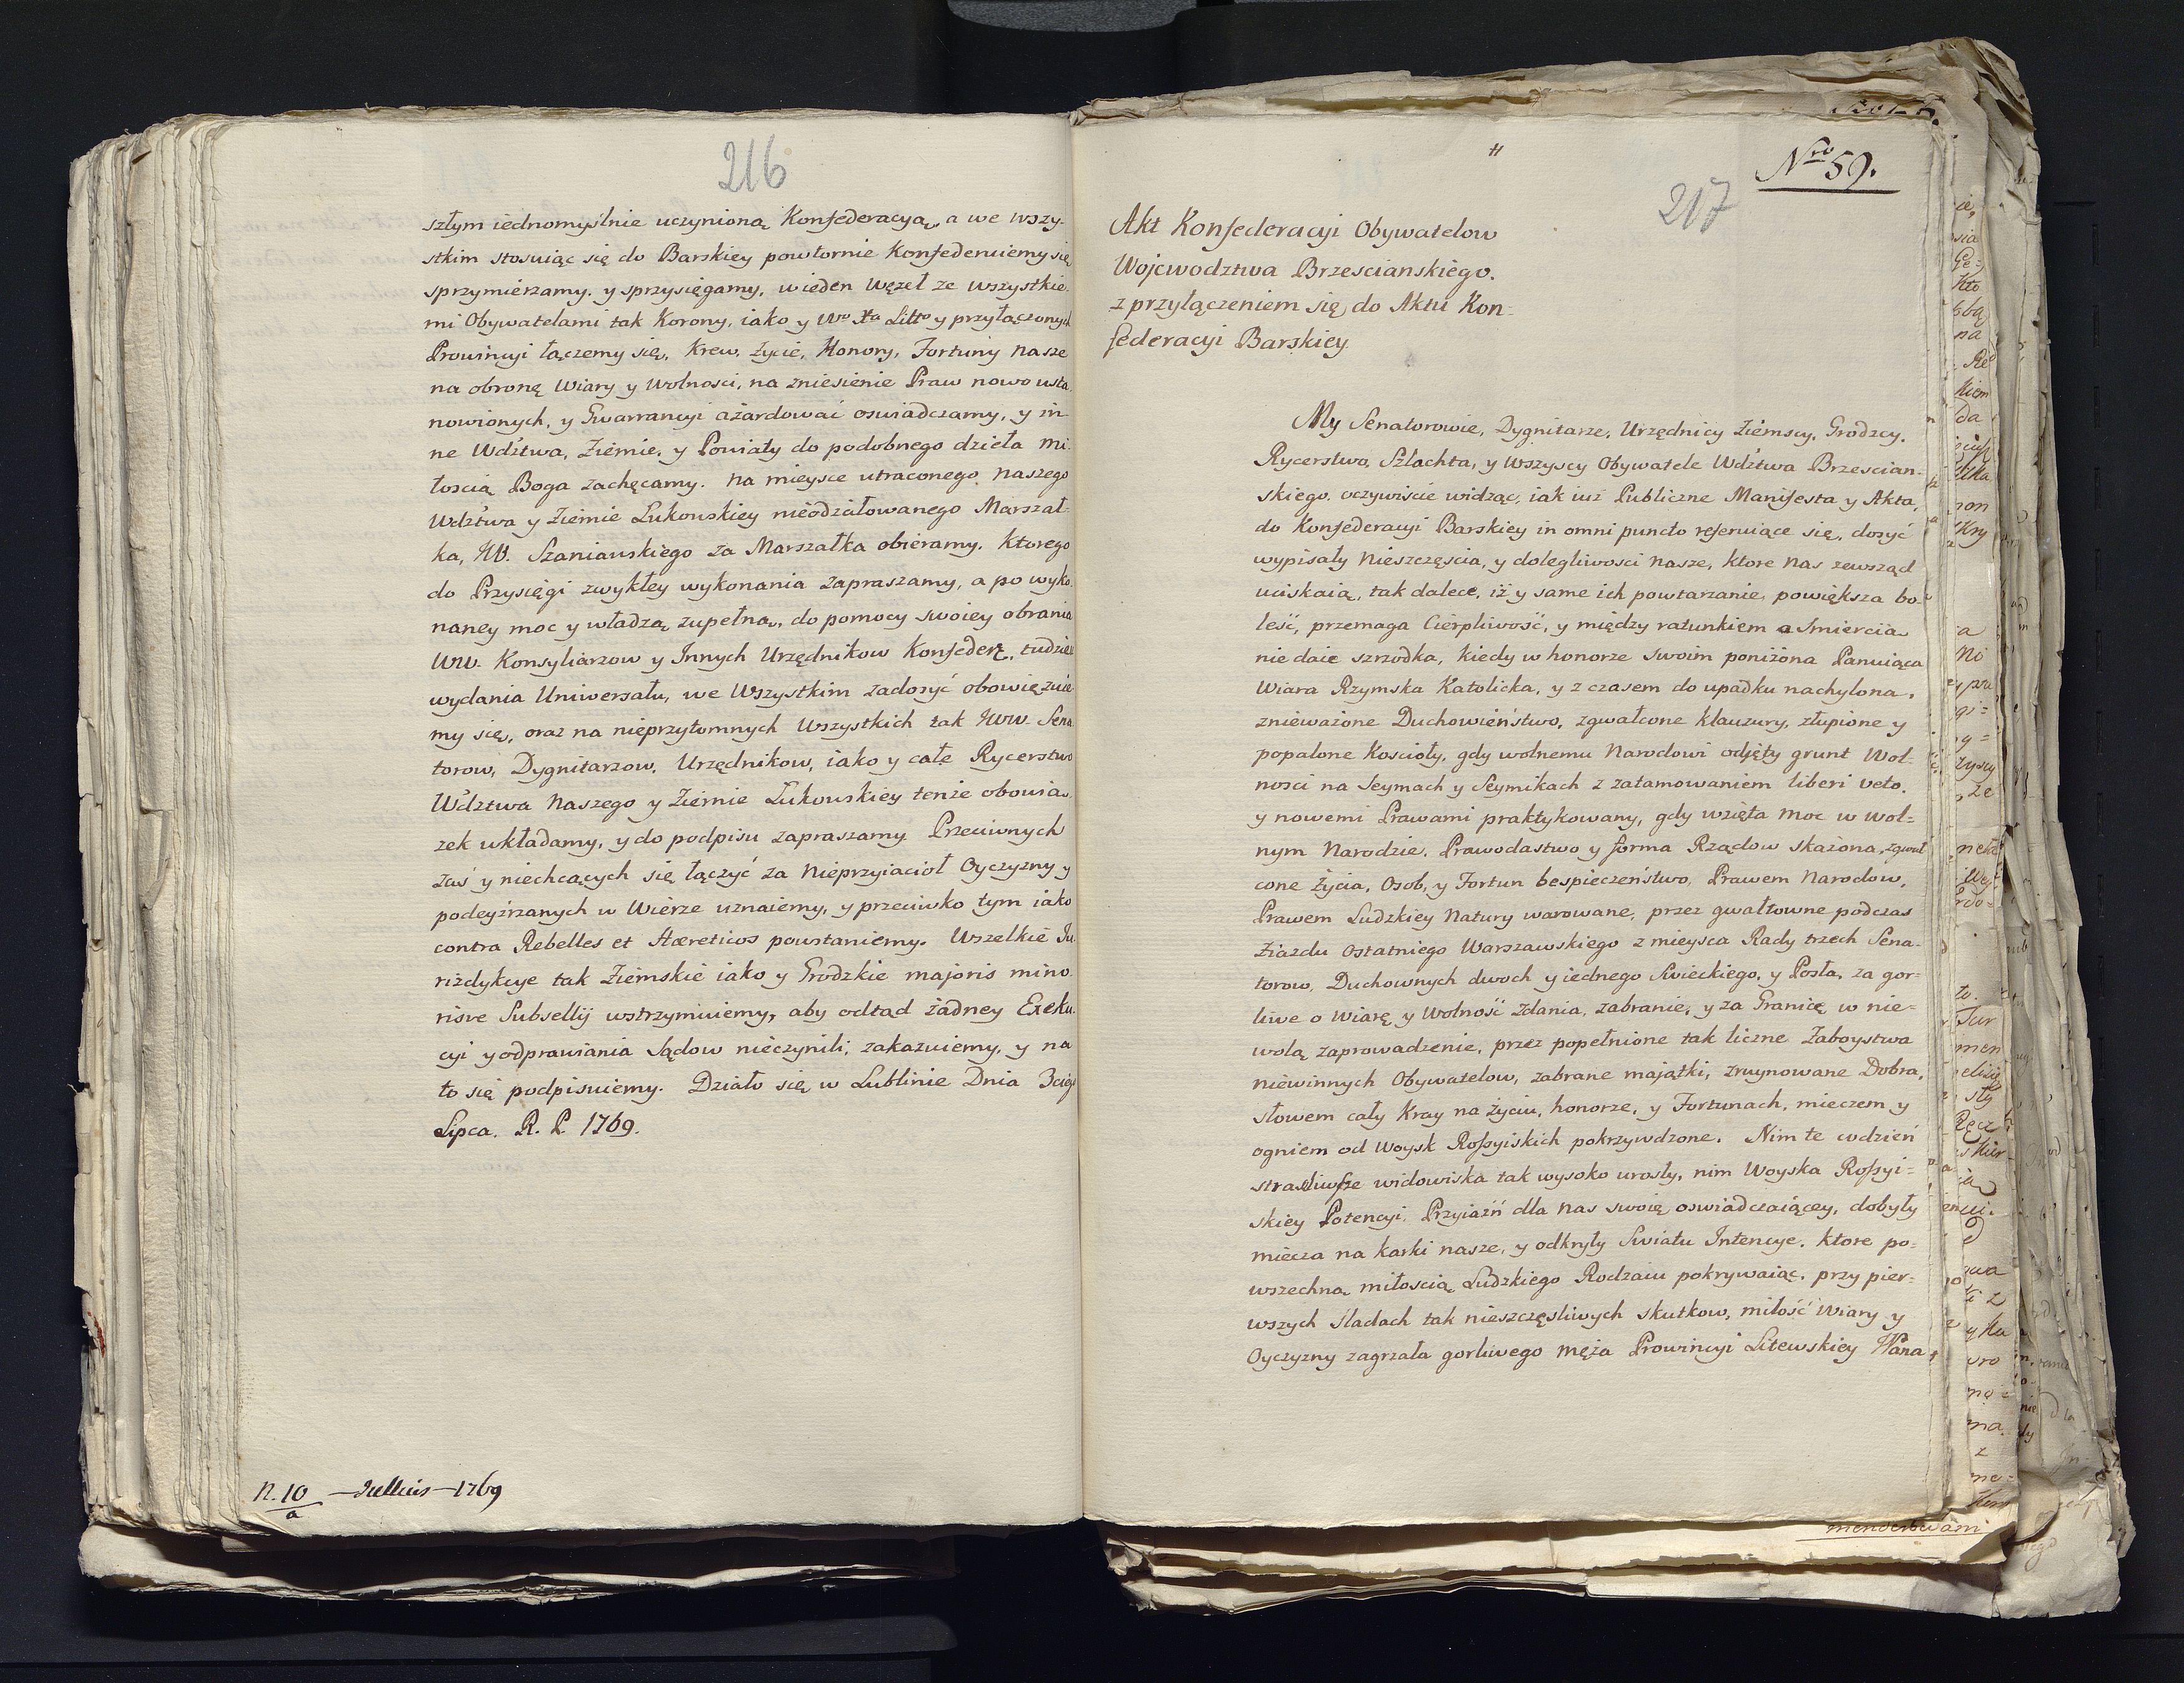 216
szłym iednomyślnie uczynioną Konfederacyą, a we wszy-
stkim stosuiąc się do Barskiey powtornie Konfederuiemy się
sprzymierzamy. y sprzysięgamy, wieden węzeł ze wszystkie-
mi Obywatelami tak Korony, iako y Wgo Xa Litto y przyłączonych
Prowincyi łączemy się, Krew, życie, Honory, Fortuny nasze
na obronę Wiary y Wolnosci, na zniesienie Praw nowo usta-
nowionych, y Gwarrancyi ażardować oswiadczamy, y in-
ne Wdztwa, Ziemie, y Powiaty do podobnego dzieła mi-
łoscią Boga zachęcamy. na mieysce utraconego naszego
Wdztwa y Ziemie Łukowskiey nieodżałowanego Marszał-
ka, JW. Szaniawskiego za Marszałka obieramy. Ktorego
do Przysięgi zwykłey wykonania zapraszamy, a po wyko-
naney moc y władzą zupełną, do pomocy swoiey obrania
WW. Konsyliarzow y Innych Urzędnikow Konfeder, tudzież
wydania Uniwersału, we Wszystkim zadosyć obowięzuie
my się, oraz na nieprzytomnych Wszystkich tak JWW. Sena
torow, Dygnitarzow, Urzędnikow, iako y całe Rycerstwo
Wdztwa Naszego y Ziemie Łukowskiey tenże obowią-
zek wkładamy, y do podpisu zapraszamy Przeciwnych
zaś y niechcących się łączyć za Nieprzyiacioł Oyczyzny y
podeyźrzanych w Wierze uznaiemy, y przeciwko tym iako
contra Rebelles et Hæreticos powstaniemy. Wszelkie Ju-
rizdykcye tak Ziemskie iako y Grodzkie majoris mino-
risve Subsellij wstrzymuiemy, aby odtąd żadney Exeku-
cyi y odprawiania Sądow nieczynili, zakazuiemy, y na
to się podpisuiemy. Działo się w Lublinie Dnia 3cieg
Lipca. R. P. 1769.
N. 10 — Jullius — 1769
a
Nro 59.
217
Akt Konfederacyi Obywatelow
Wojewodztwa Brzescianskiego.
z przyłączeniem się do Aktu Kon-
federacyi Barskiey
My Senatorowie, Dygnitarze, Urzędnicy Ziemscy, Grodzcy,
Rycerstwo, Szlachta, y Wszyscy Obywatele Wdztwa Brzescian-
skiego, oczywiscie widząc, iak iuż Publiczne Manifesta y Akta,
do Konfederacyi Barskiey in omni puncto referuiące się, dosyć
wypisały Nieszczęscia, y dolegliwosci nasze, ktore nas zewsząd
uciskaią, tak dalece, iż y same ich powtarzanie, powiększa bo-
leść, przemaga Cierpliwość, y między ratunkiem a Smiercią
nie daie szrzodka, kiedy w honorze swoim poniżona Panuiąca
Wiara Rzymska Katolicka, y z czasem do upadku nachylona,
znieważone Duchowieństwo, zgwałcone klauzury, złupione y
popalone Koscioły, gdy wolnemu Narodowi odjęty grunt Wol-
nosci na Seymach y Seymikach z zatamowaniem liberi veto,
y nowemi Prawami praktykowany, gdy wzięta moc w Wol-
nym Narodzie, Prawodastwo y forma Rządow skażona, zgwał
cone życia, Osob, y Fortun bespieczeństwo, Prawem Narodow,
Prawem Ludzkiey Natury warowane, przez gwałtowne podczas
Ziazdu Ostatniego Warszawskiego z mieysca Rady trzech Sena-
torow, Duchownych dwoch y iednego Swieckiego, y Posła, za gor-
liwe o Wiarę y Wolność Zdania, zabranie, y za Granicę w nie-
wolą zaprowadzenie, przez popełnione tak liczne Zaboystwa
niewinnych Obywatelow, zabrane majątki, zruynowane Dobra,
słowem cały Kray na życiu, honorze, y Fortunach, mieczem y
ogniem od Woysk Rossyiskich pokrzywdzone. Nim te codzień
straszliwsze widowiska tak wysoko urosły, nim Woyska Rossyi-
skiey Potencyi, Przyiaźń dla nas swoię oswiadczaiącey, dobyły
miecza na karki nasze, y odkryły Swiatu Intencye, ktore po-
wszechną miłoscią Ludzkiego Rodzaiu pokrywaiąc, przy pier-
wszych śladach tak nieszczęsliwych skutkow, miłość Wiary y
Oyczyzny zagrzała gorliwego męża Prowincyi Litewskiey JPana